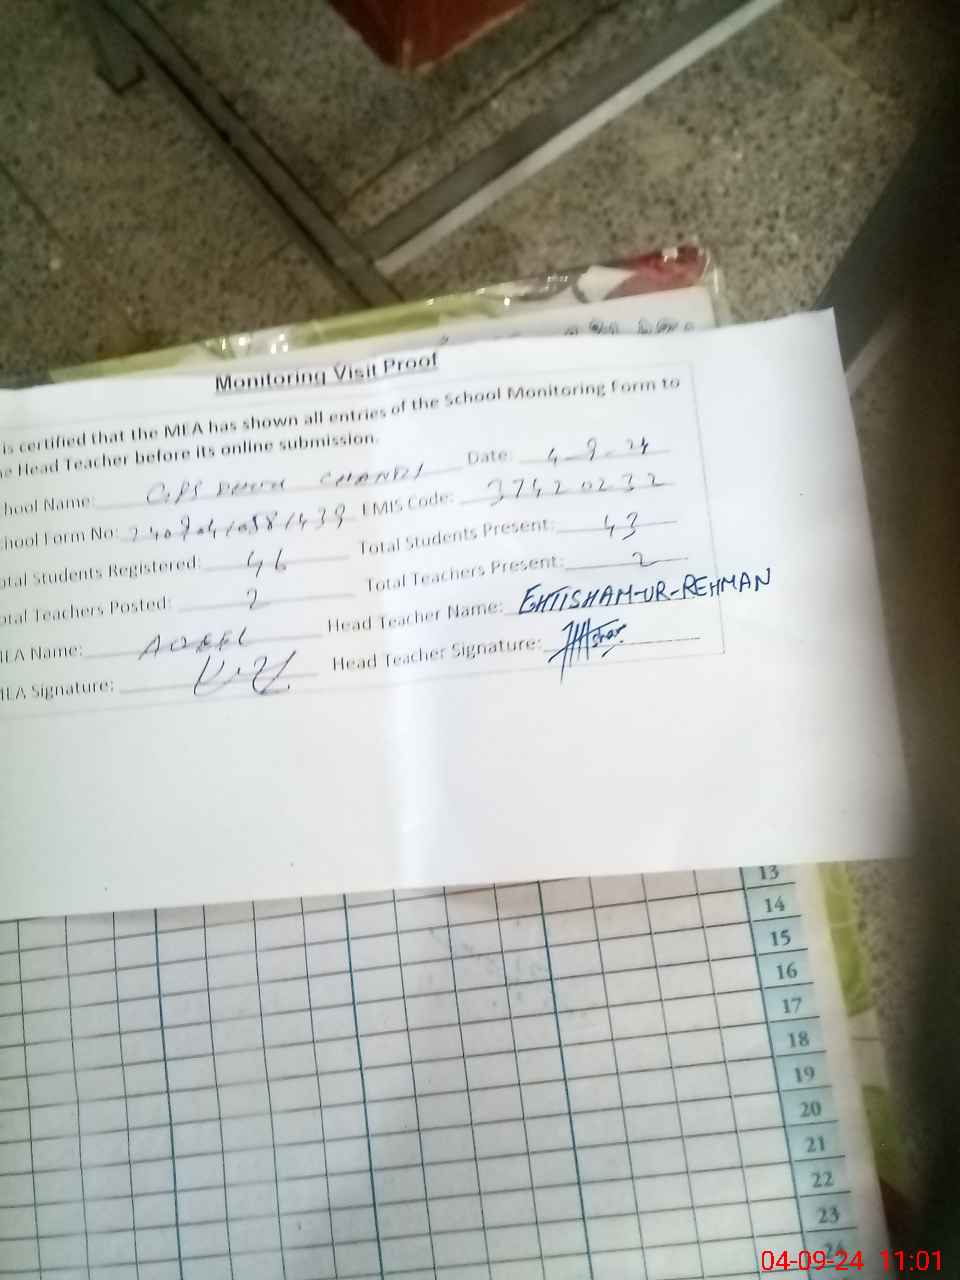 Monitoring Visit Proof
is certified that the MEA has shown all entries of the School Monitoring Form to
e Head Teacher before its online submission.
hool Name: GPS CHANDI Date: 4-9-24
hool Form No: EMIS Code: 37420232
otal Students Registered: 46 Total Students Present: 43
otal Teachers Posted: 2 Total Teachers Present: 2
MEA Name: Head Teacher Name: EHTISHAM-UR-REHMAN
MEA Signature: Head Teacher Signature:
13
14
15
16
17
18
19
20
21
22
23
24
04-09-24 11:01